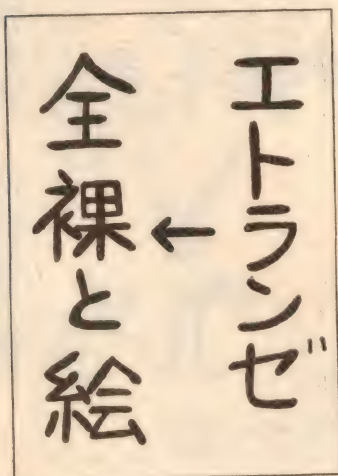 エトランゼ
←
全裸と絵